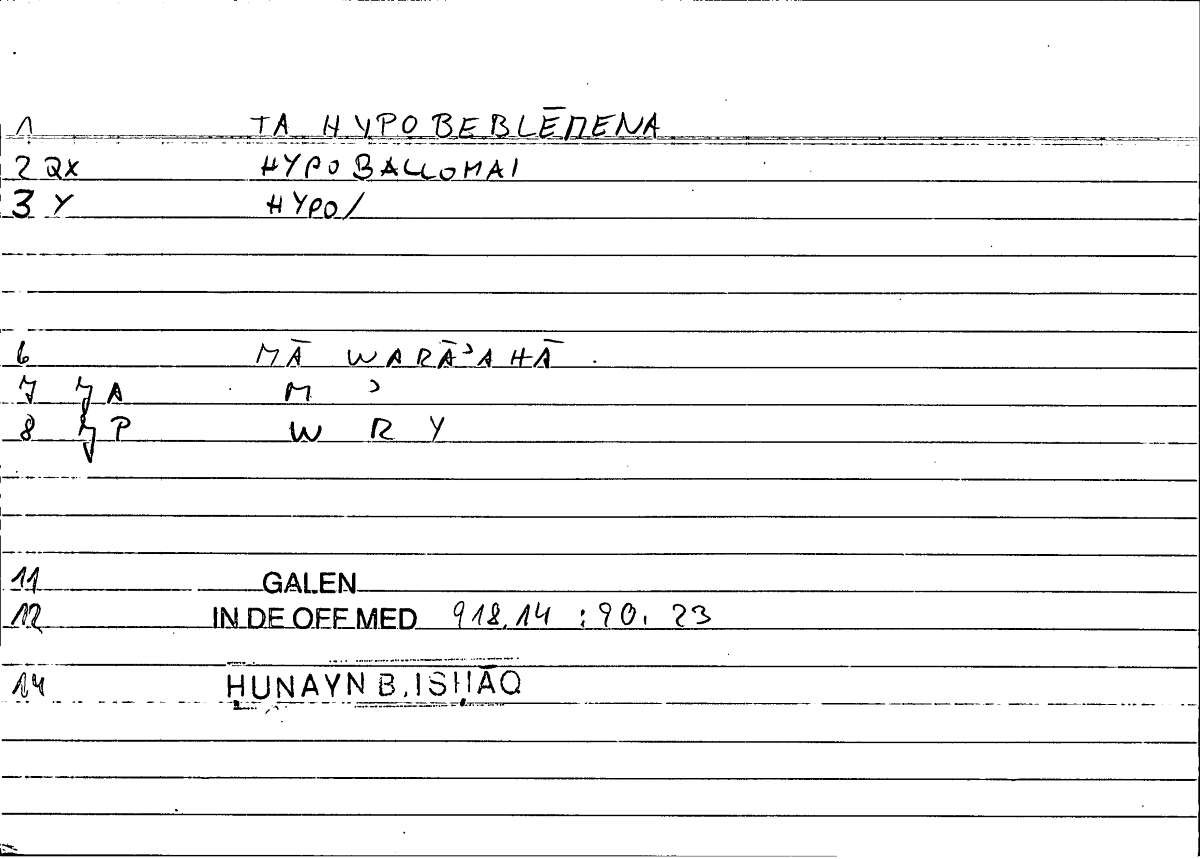 1 TA HYPOBEBLĒMENA
2 QX HYPOBALLOMAI
3 Y HYPO/
6 MĀ WARĀʾAHĀ .
7 ȜA M ʾ
8 ȜP W R Y
11 GALEN
12 IN DE OFF MED 918,14 : 90, 23
14 ḤUNAYN B. ISḤĀQ